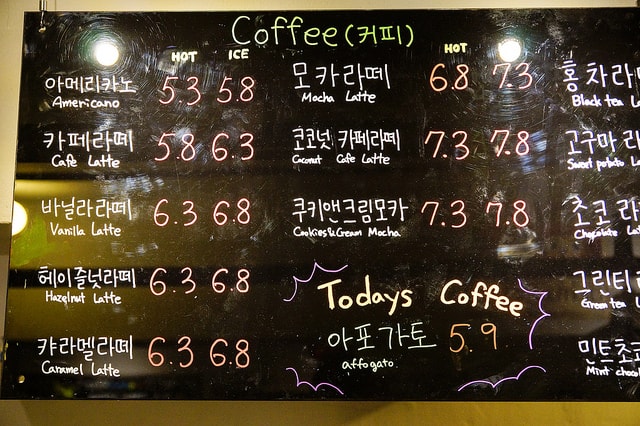 Coffee (커피)
HOT ICE
아메리카노 5.3 5.8
Americano
카페라떼 5.8 6.3
Cafe Latte
바닐라라떼 6.3 6.8
Vanilla Latte
헤이즐넛라떼 6.3 6.8
Hazelnut Latte
캬라멜라떼 6.3 6.8
Caramel Latte
HOT
모카라떼 6.8 7.3
Mocha Latte
코코넛 카페라떼 7.3 7.8
Coconut Cafe Latte
쿠키앤크림모카 7.3 7.8
Cookies&Cream Mocha
Todays Coffee
아포가토 5.9
affogato
홍차라
Black tea
고구마
Sweet potato
초코
Chocolate
그린티
Green tea
민트초코
Mint